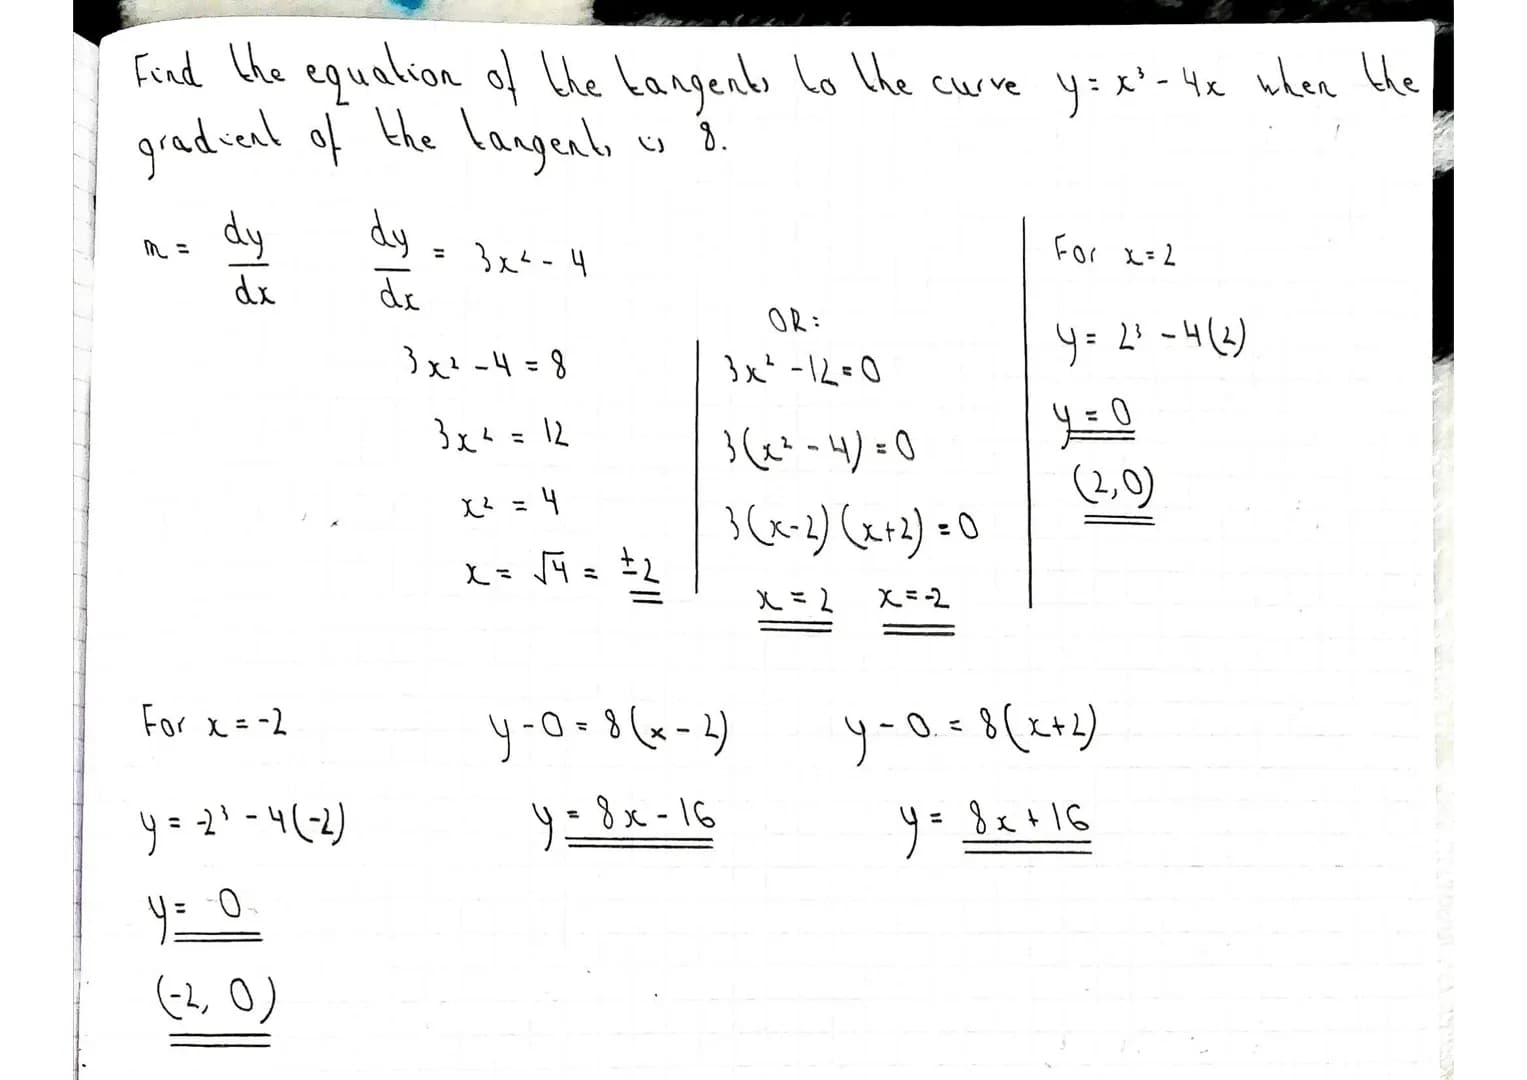 Find the equation of the tangents to the curve y = x³ - 4x when the
gradient of the tangents is 8.
m = dy/dx
dy/dx = 3x² - 4
3x² - 4 = 8
3x² = 12
x² = 4
x = √4 = ±2
OR:
3x² - 12 = 0
3(x² - 4) = 0
3(x-2)(x+2) = 0
x = 2 x = -2
For x = 2
y = 2³ - 4(2)
y = 0
(2,0)
For x = -2
y = -2³ - 4(-2)
y = 0
(-2, 0)
y - 0 = 8(x - 2)
y = 8x - 16
y - 0 = 8(x+2)
y = 8x + 16